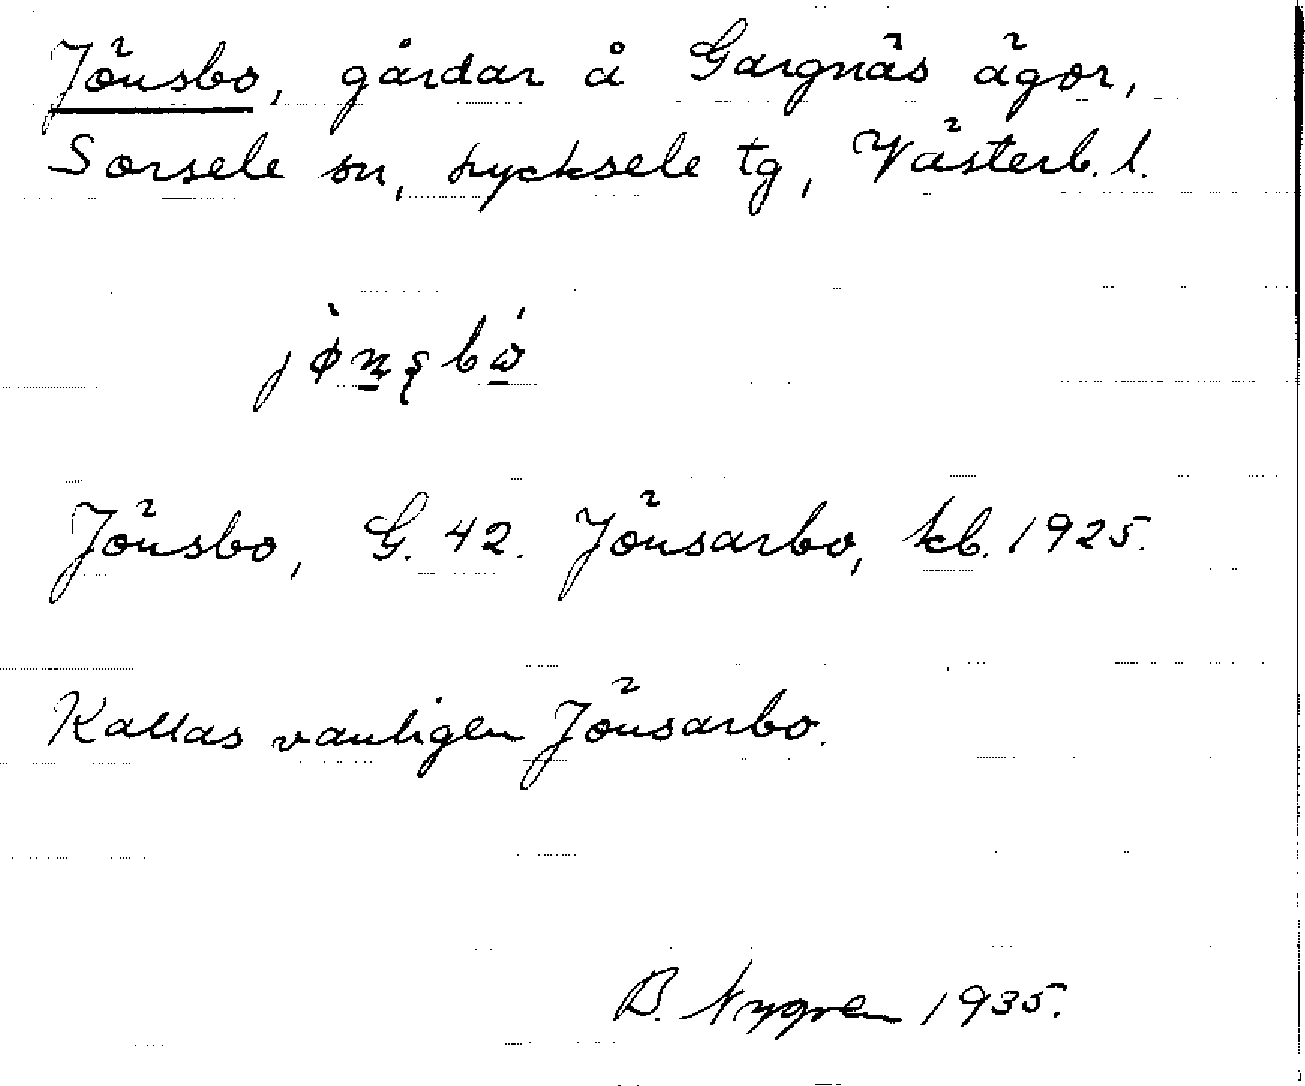 Jönsbo, gårdar å Gargnäs ägor,
Sorsele sn, Lycksele tg, Västerb. l.
Jönsbo, G. 42. Jönsarbo, kb. 1925.
Kallas vanligen Jönsarbo.
B. Nygren 1935.